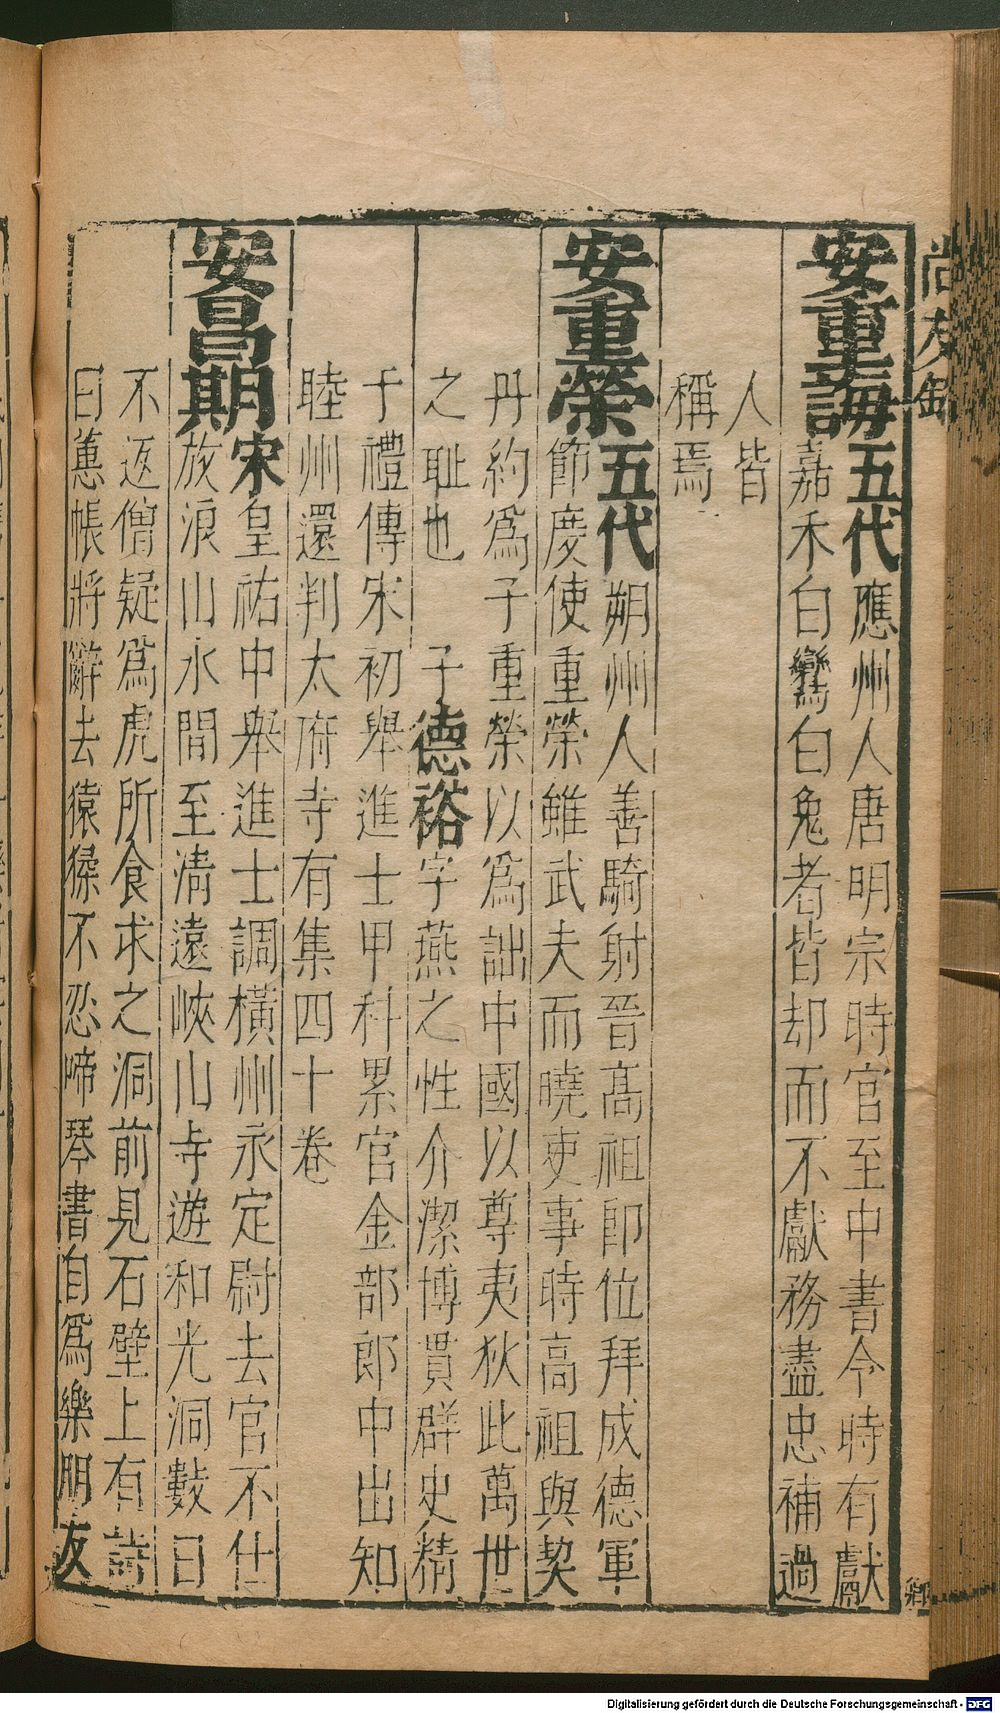 尚友錄
安重誨五代應州人唐明宗時官至中書令時有獻
嘉禾白鸞白兔者皆却而不獻務盡忠補過
人皆
稱焉
安重榮五代朔州人善騎射晉高祖卽位拜成德軍
節度使重榮雖武夫而曉吏事時高祖與契
丹約爲子重榮以爲詘中國以尊夷狄此萬世
之耻也 子德裕字燕之性介潔博貫群史精
于禮傳宋初舉進士甲科累官金部郎中出知
睦州還判太府寺有集四十卷
安昌期宋皇祐中舉進士調橫州永定尉去官不仕
放浪山水間至清遠峽山寺遊和光洞數日
不返僧疑爲虎所食求之洞前見石壁上有詩
曰蕙帳將辭去猿猱不忍啼琴書自爲樂朋友
Digitalisierung gefördert durch die Deutsche Forschungsgemeinschaft - DFG